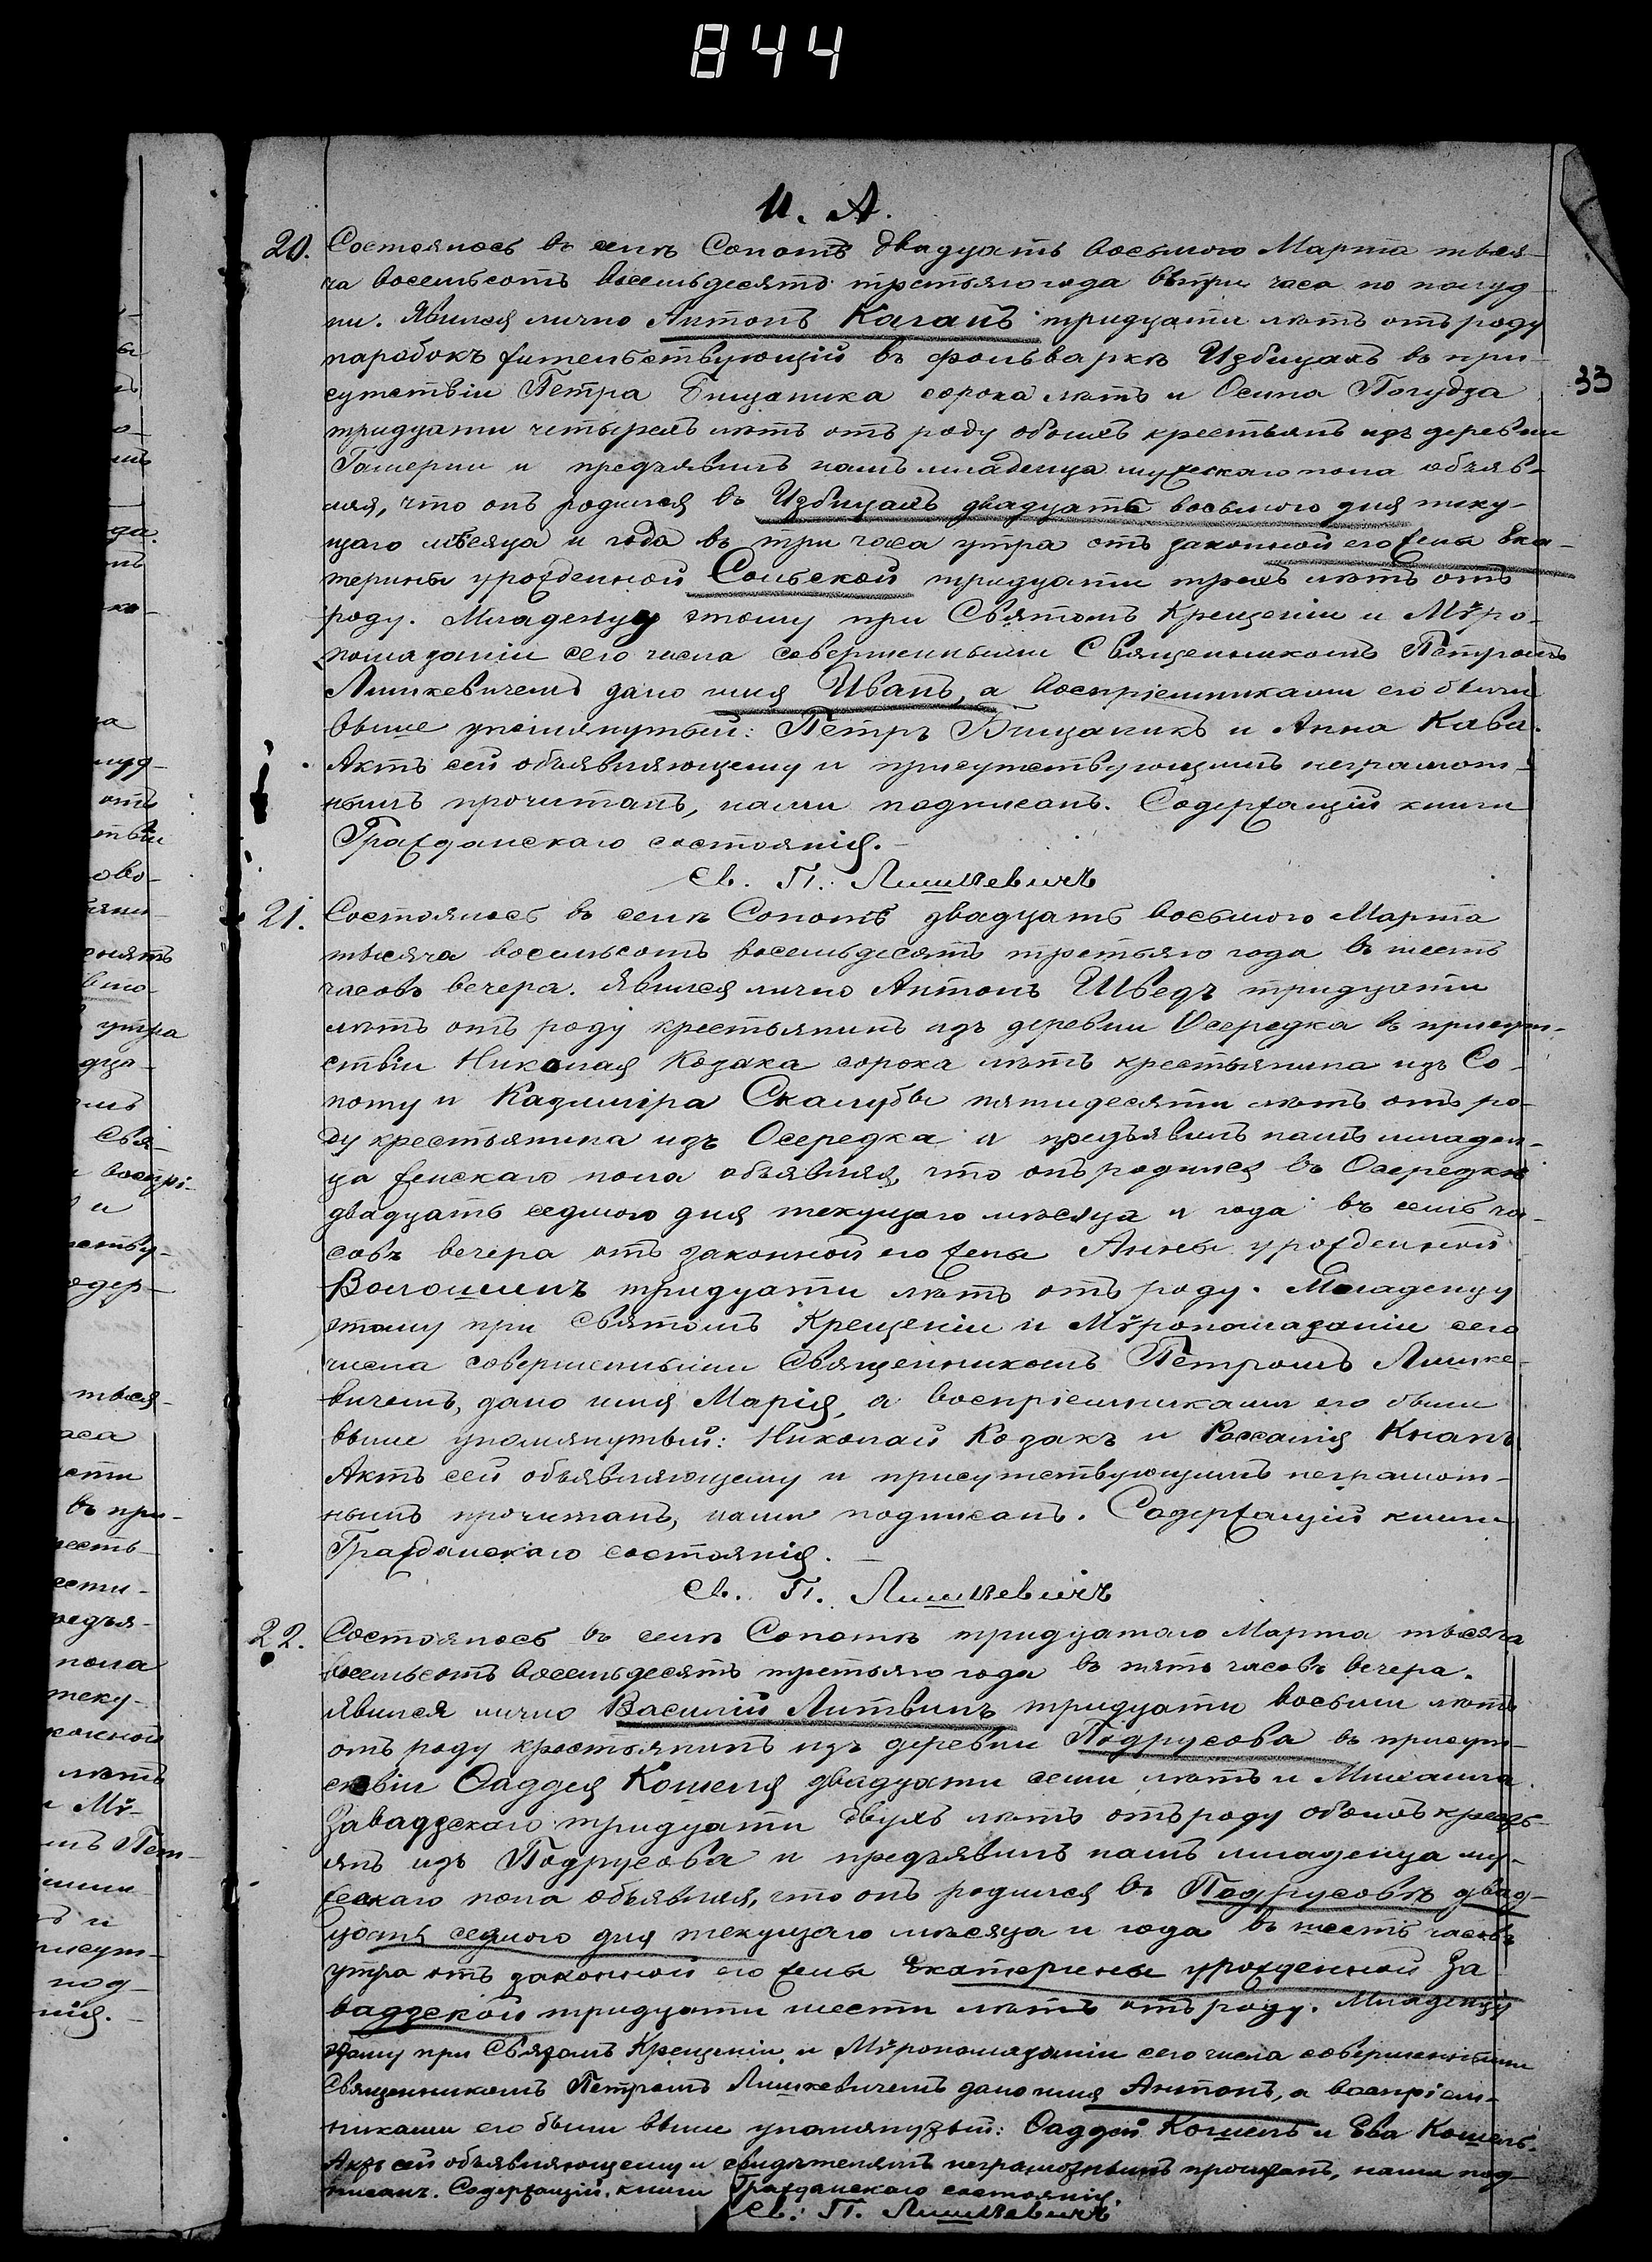 844
11. А.
33
20. Состоялось въ селѣ Сопотъ двадцать восьмого Марта тыся-
ча восемьсотъ восемьдесятъ третьяго года въ три часа по полуд-
ни. Явился лично Антонъ Каганъ тридцати лѣтъ отъ роду
паробокъ жительствующій въ фольваркѣ Избицахъ въ при-
сутствіи Петра Бицаника сорока лѣтъ и Осипа Погудза
тридцати четырехъ лѣтъ отъ роду обоихъ крестьянъ изъ деревни
Гамерни и предъявилъ намъ младенца мужескаго пола объяв-
ляя, что онъ родился въ Избицахъ двадцать восьмого дня теку-
щаго мѣсяца и года въ три часа утра отъ законной его жены Ека-
терины урожденной Сольской тридцати трехъ лѣтъ отъ
роду. Младенцу этому при Святомъ Крещеніи и Мѵро-
помазаніи сего числа совершенными Священникомъ Петромъ
Лишкевичемъ дано имя Иванъ, а воспріемниками его были
выше упомянутый: Петръ Бицаникъ и Анна Кава.
Актъ сей объявляющему и присутствующимъ неграмот-
нымъ прочитанъ, нами подписанъ. Содержащій книги
Гражданскаго состоянія.-
Св. П. Лишкевичъ
21. Состоялось въ селѣ Сопотъ двадцать восьмого Марта
тысяча восемьсотъ восемьдесятъ третьяго года въ шесть
часовъ вечера. Явился лично Антонъ Шведъ тридцати
лѣтъ отъ роду крестьянинъ изъ деревни Осередка в присут-
ствіи Николая Козака сорока лѣтъ крестьянина изъ Со-
поту и Казиміра Скалубы пятидесяти лѣтъ отъ ро-
ду крестьянина изъ Осередка и предъявилъ намъ младен-
ца женскаго пола объявляя, что онъ родился въ Осередкѣ
двадцать седмого дня текущаго мѣсяца и года въ семь ча-
совъ вечера отъ законной его жены Анны урожденной
Волошинъ тридцати лѣтъ отъ роду. Младенцу
этому при Святомъ Крещеніи и Мѵропомазаніи сего
числа совершенными Священникомъ Петромъ Лишке-
вичемъ, дано имя Марія, а воспріемниками его были
выше упомянутый: Николай Козакъ и Россалія Кнапъ
Актъ сей объявляющему и присутствующимъ неграмот-
нымъ прочитанъ, нами подписанъ. Содержащій книги
Гражданскаго состоянія. -
Св. П. Лишкевичъ
22. Состоялось въ селѣ Сопотѣ тридцатаго Марта тысяча
восемьсотъ восемьдесятъ третьяго года въ пять часовъ вечера.
Явился лично Василій Литвинъ тридцати восьми лѣтъ
отъ роду крестьянинъ изъ деревни Подрусова въ присут-
ствіи Фаддея Кошеля двадцати семи лѣтъ и Михаила
Завадзскаго тридцати двухъ лѣтъ отъ роду обоихъ кресть-
янъ изъ Подрусова и предъявилъ намъ младенца му-
жескаго пола объявляя, что онъ родился въ Подрусовѣ двад-
цать седмого дня текущаго мѣсяца и года въ шесть часовъ
утра отъ законной его жены Екатерины урожденной За-
вадзской тридцати шести лѣтъ отъ роду. Младенцу
этому при Святомъ Крещеніи и Мѵропомазаніи сего числа совершенными
Священникомъ Петромъ Лишкевичемъ дано имя Антонъ, а воспріем-
никами его были выше упомянутый: Фаддей Кошель и Ева Кошель.
Актъ сей объявляющему и свидѣтелямъ неграмотнымъ прочитанъ, нами под-
писанъ. Содержащій книги Гражданскаго состоянія.
Св. П. Лишкевичъ